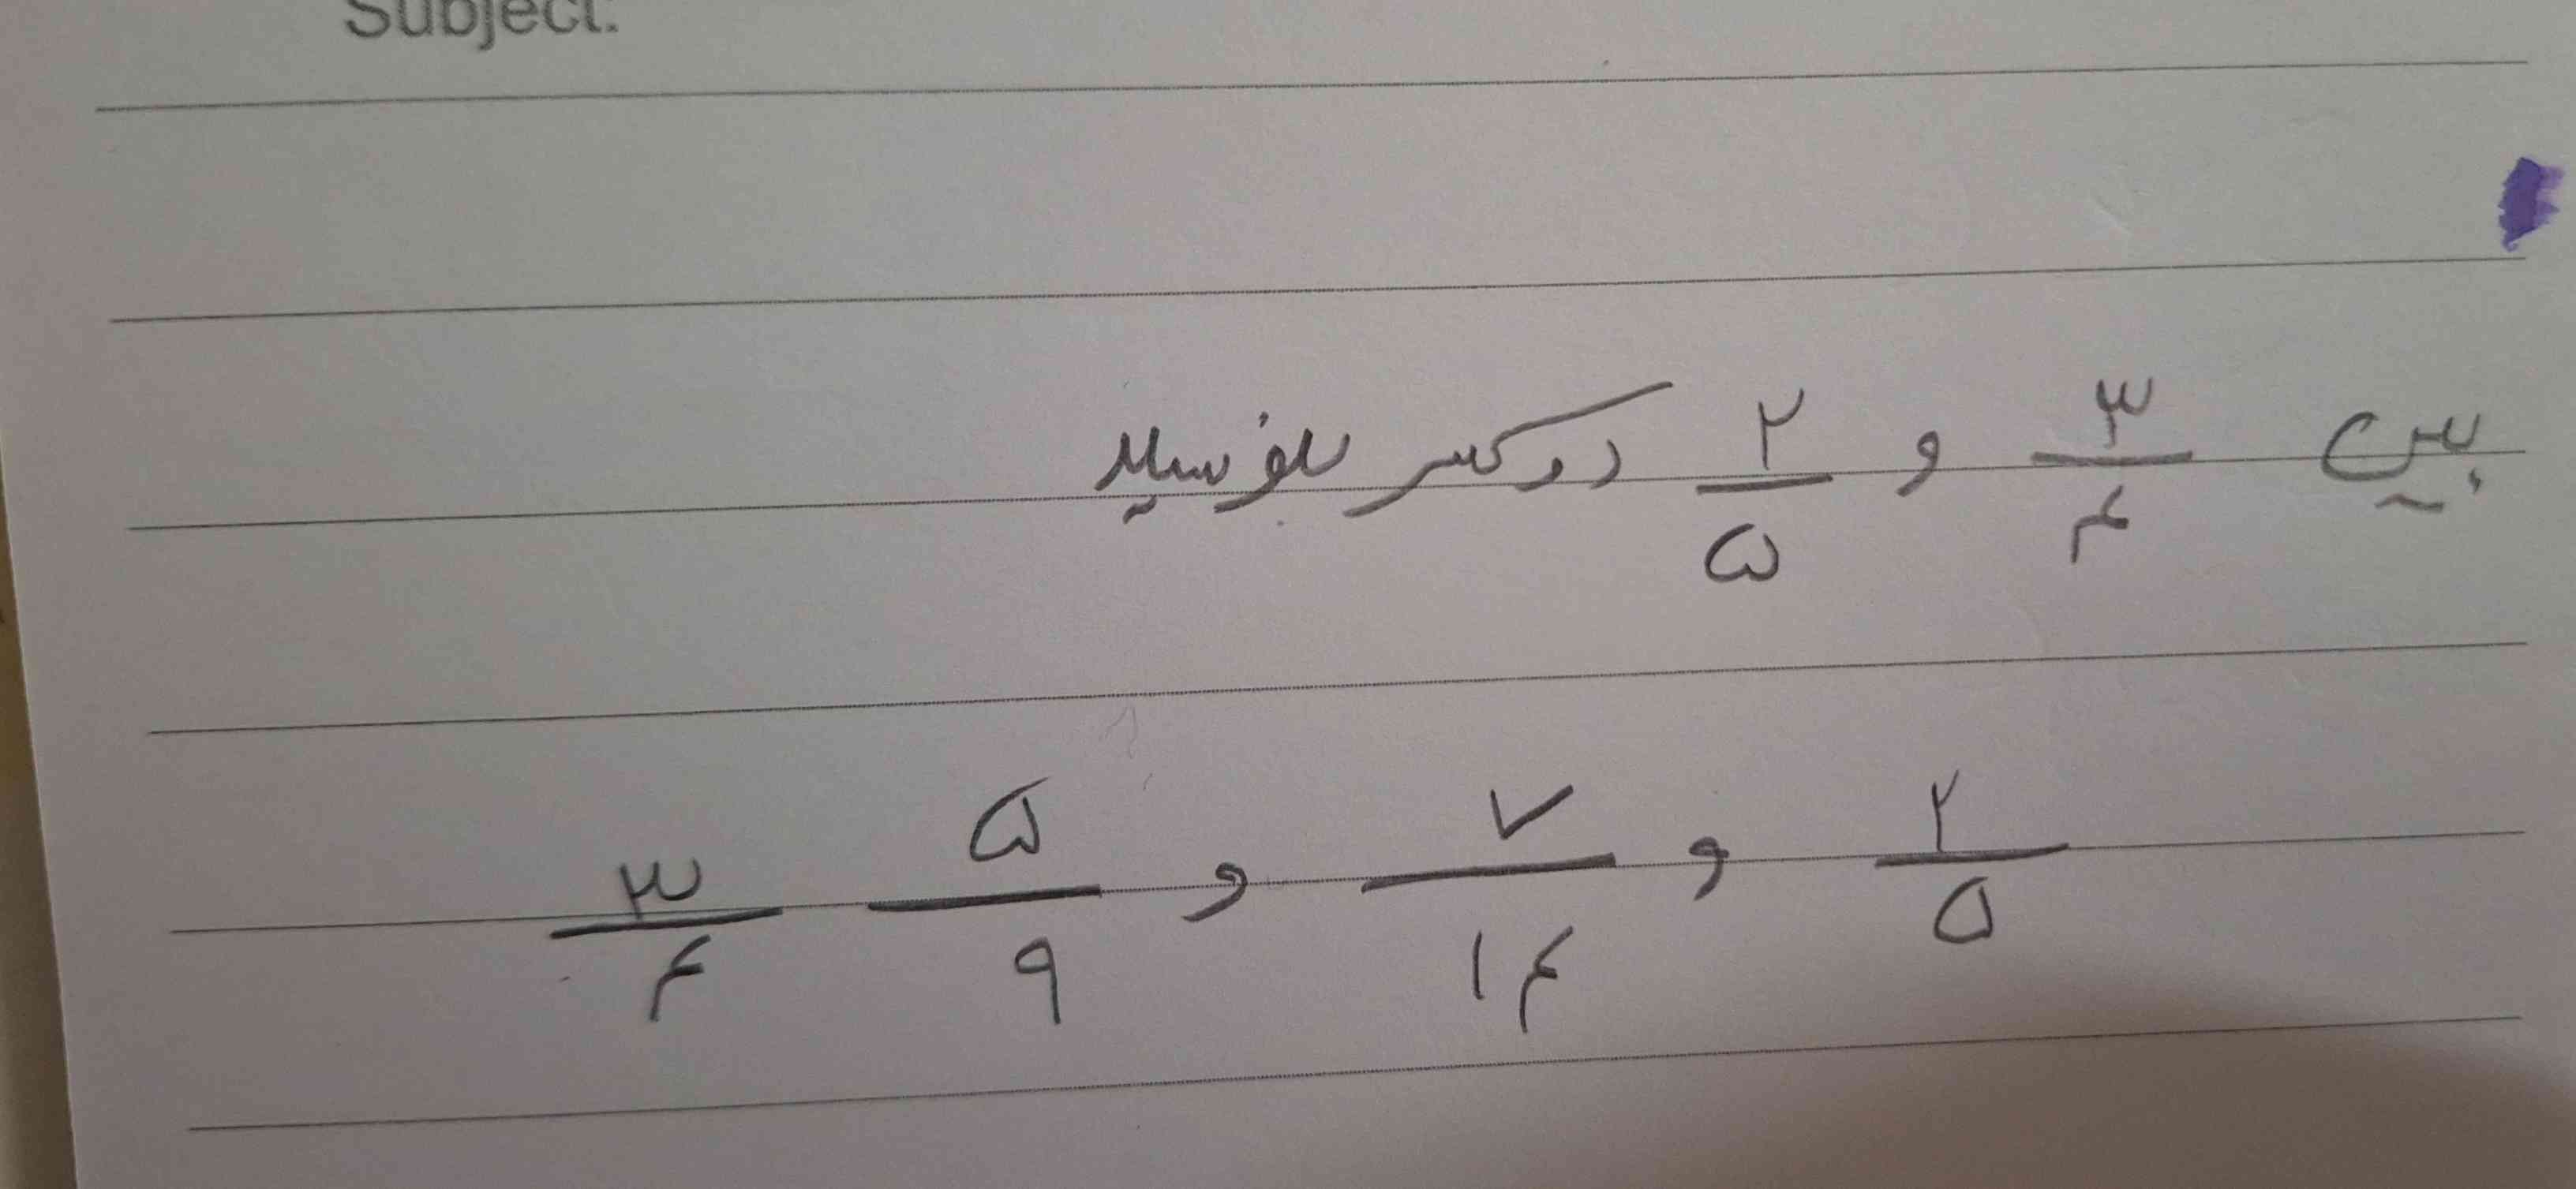 Subject:
بین ۳/۴ و ۲/۵ دو کسر بنویسید
۲/۵ و ۷/۱۴ و ۵/۹ ۳/۴